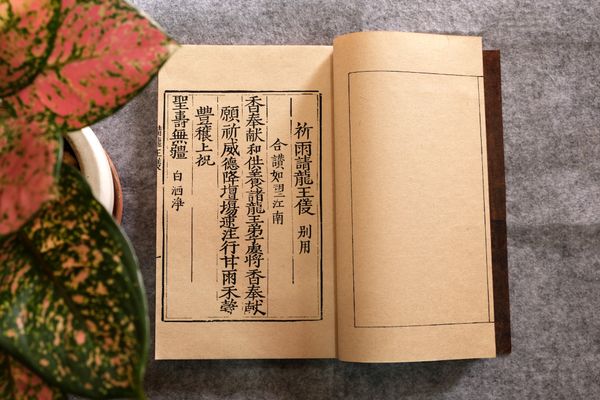 祈雨請龍王儀 別用
合讚如望江南
香奉献和供養諸龍王弟子虔將香奉献
願祈威德降壇場速注行甘雨禾
豐穰上祝
聖壽無疆 白洒淨